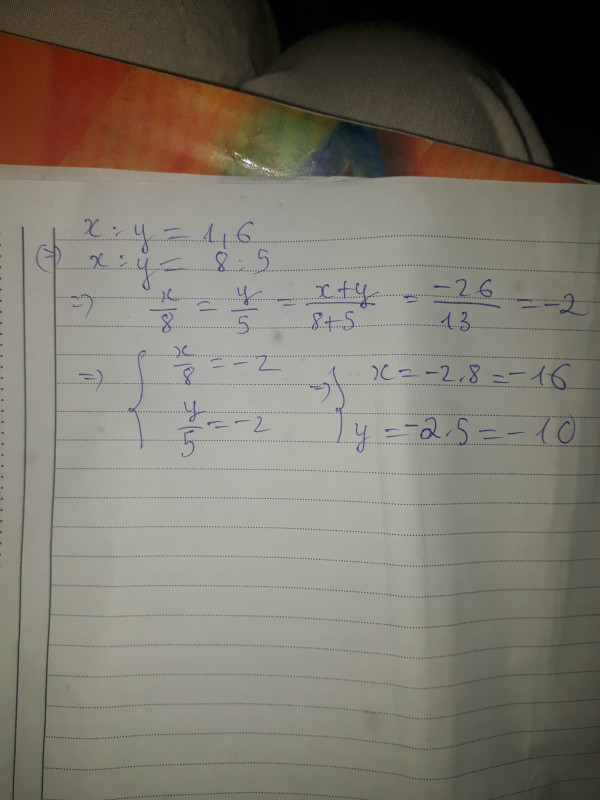 x : y = 1,6
(=) x : y = 8 : 5
=) x/8 = y/5 = x+y/8+5 = -26/13 = -2
=) { x/8 = -2 =) { x = -2.8 = -16
y/5 = -2 y = -2.5 = -10